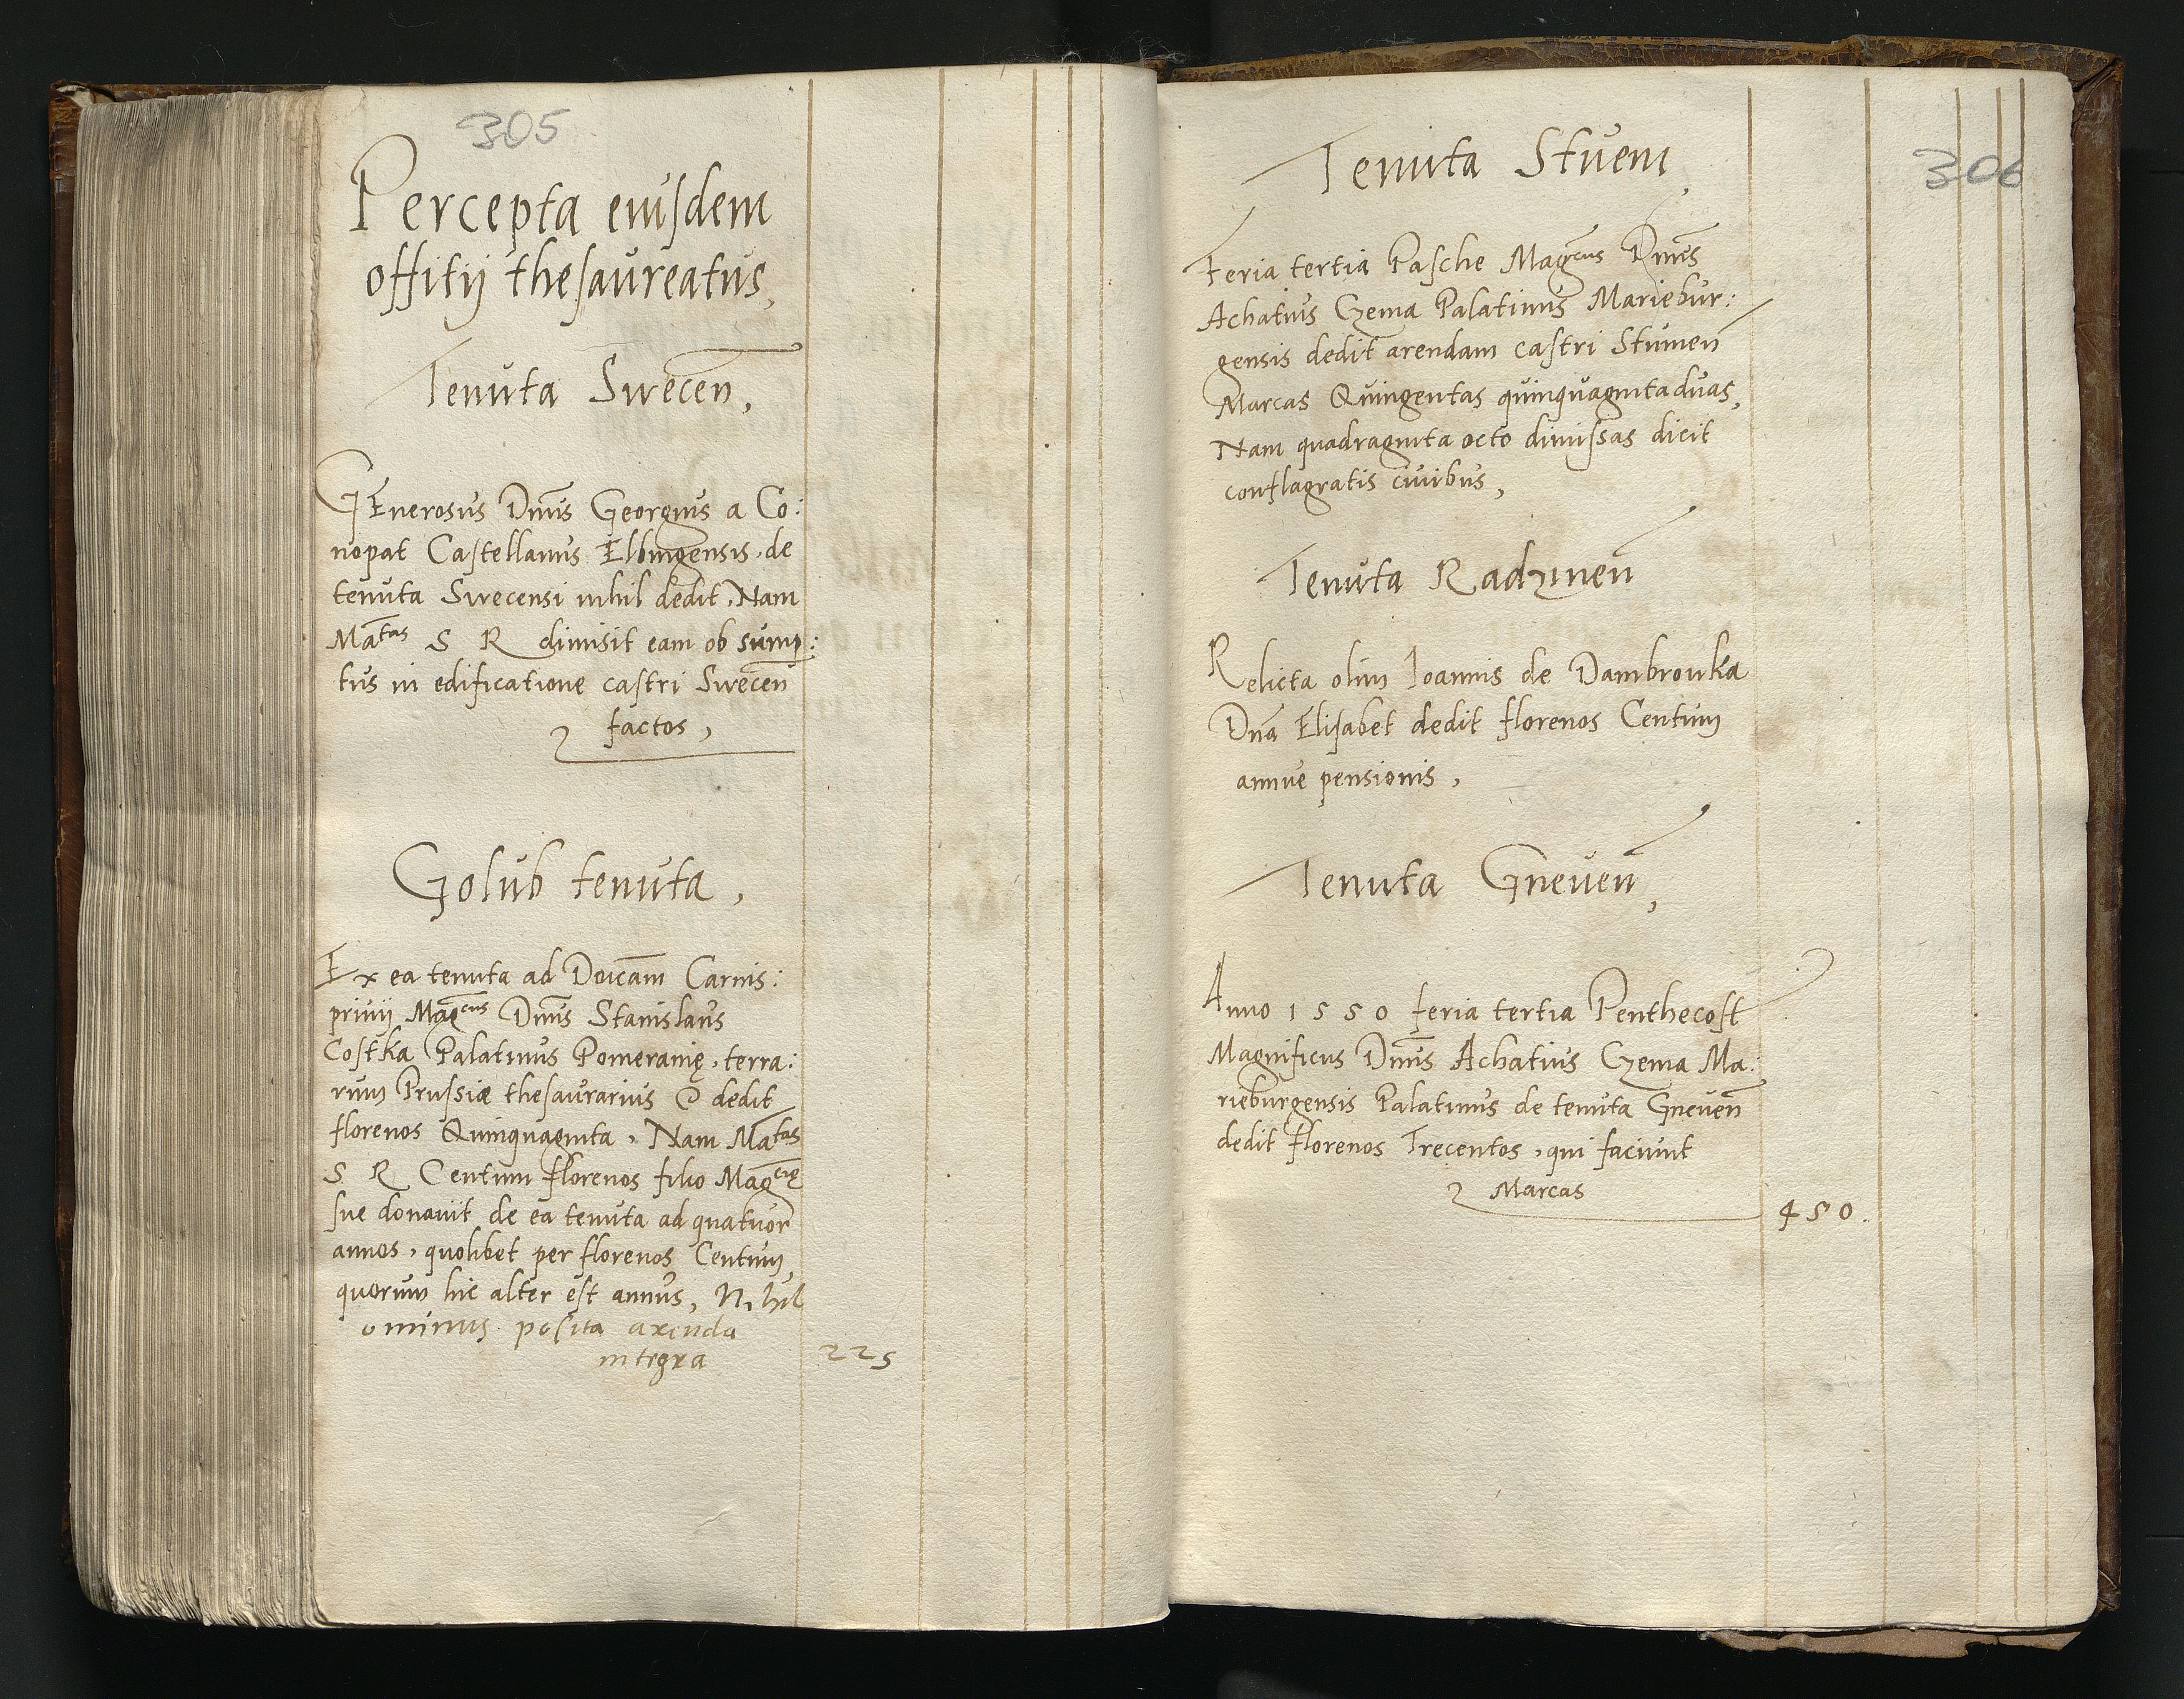 305
Percepta eiusdem
offitij thesaureatus,
Tenuta Swecen,
GEnerosus Dnus Georgius a Co:
nopat Castellanus Elbingensis, de
tenuta Swecensi nihil dedit, Nam
Matas S R dimisit eam ob sump:
tus in edificatione castri Swecen
factos,
Golub tenuta,
Ex ea tenuta ad Doicam Carnis:
privij Magcus Dnus Stanislaus
Costka Palatinus Pomeranię, terra:
rum Prussiæ thesaurarius & dedit
florenos Quinquaginta, Nam Matas
S R Centum florenos filio Magcię
sue donavit de ea tenuta ad quatuor
annos, quolibet per florenos Centum,
quorum hic alter est annus, Nihil
ominus posita arenda
integra 225
306
Tenuta Stuem,
Feria tertia Pasche Magcus Dnus
Achatius Czema Palatinus Mariebur:
gensis dedit arendam castri Stumen
Marcas Quingentas quinquagintaduas,
Nam quadraginta octo dimissas dicit
conflagratis civibus,
Tenuta Radzinen
Relicta olim Joannis de Dambrouka
Dna Elisabet dedit florenos Centum
annue pensionis,
Tenuta Gneuen,
Anno 1550 feria tertia Penthecost
Magnificus Dnus Achatius Czema Ma:
rieburgensis Palatinus de tenuta Gneuen
dedit florenos Trecentos, qui faciunt
Marcas
450.